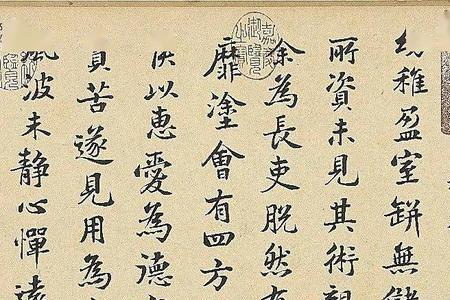 幼稚盈室缾無儲
所資未見其術親
余為長吏脫然有
靡塗會有四方
以惠愛為德
苦遂見用為
風波未靜心憚遠
嘉慶御覽之寶